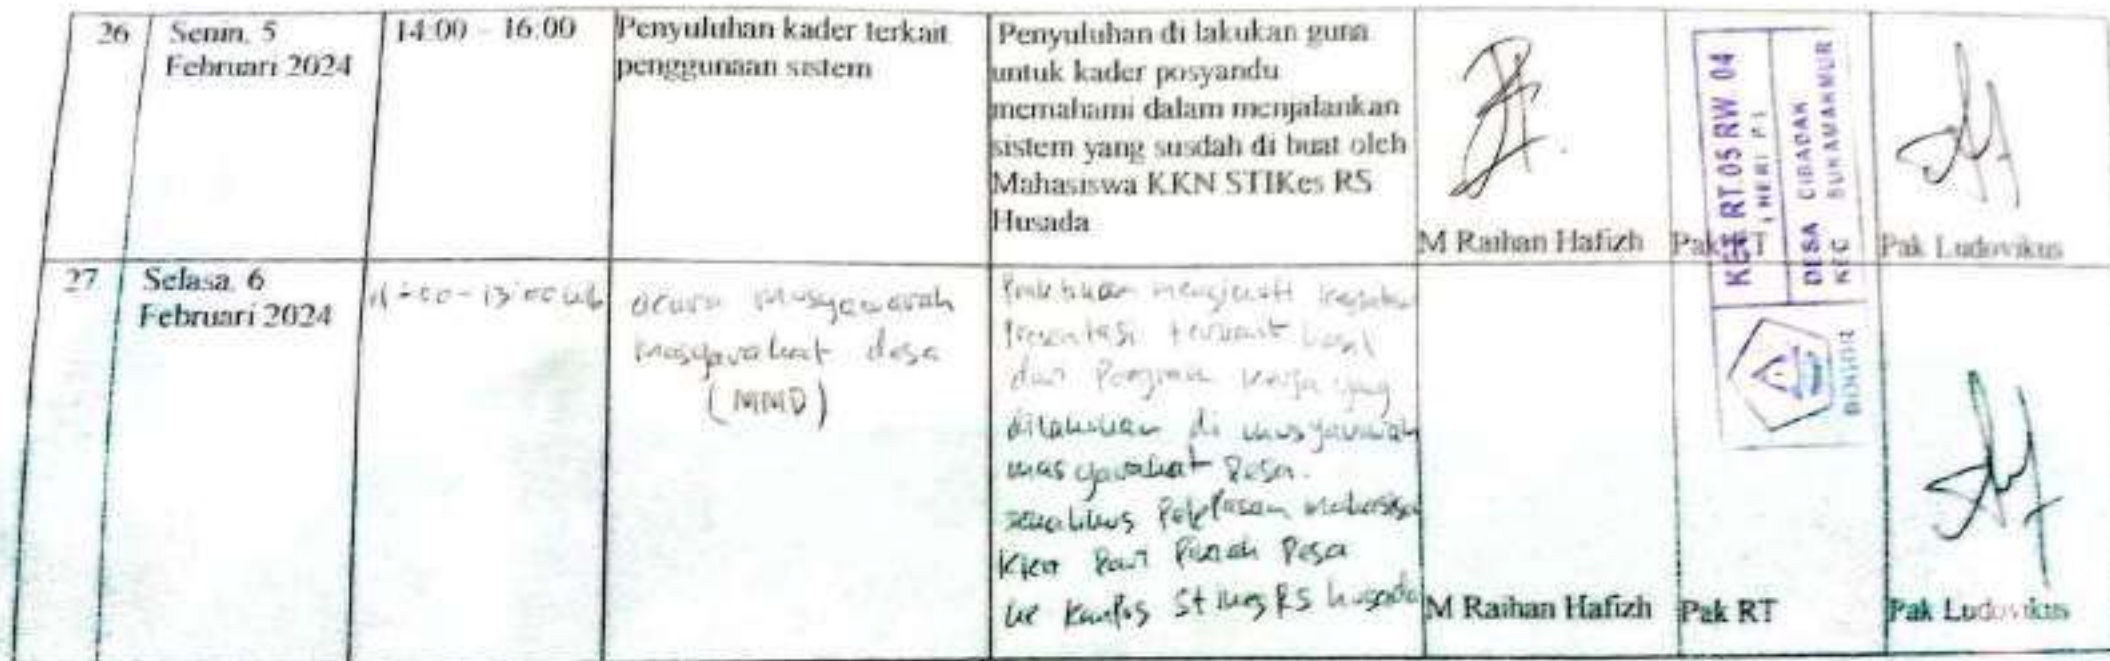 26
Senin, 5
Februari 2024
14:00 - 16:00
Penyuluhan kader terkait
penggunaan sistem
Penyuluhan di lakukan guna
untuk kader posyandu
memahami dalam menjalankan
sistem yang susdah di buat oleh
Mahasiswa KKN STIKes RS
Husada
M Raihan Hafizh
Pak RT
Pak Ludovikus
RT.05 RW 04
DESA CIBADAK
KEC SUKAMAKMUR
BOGOR
27
Selasa, 6
Februari 2024
acara musyawarah
masyarakat desa
(MMD)
presentasi terkait hasil
dari Program kerja yang
dilakukan di musyawarah
masyarakat Desa.
sekaligus
Desa
ke Kampus Stikes RS husada
M Raihan Hafizh
Pak RT
Pak Ludovikus